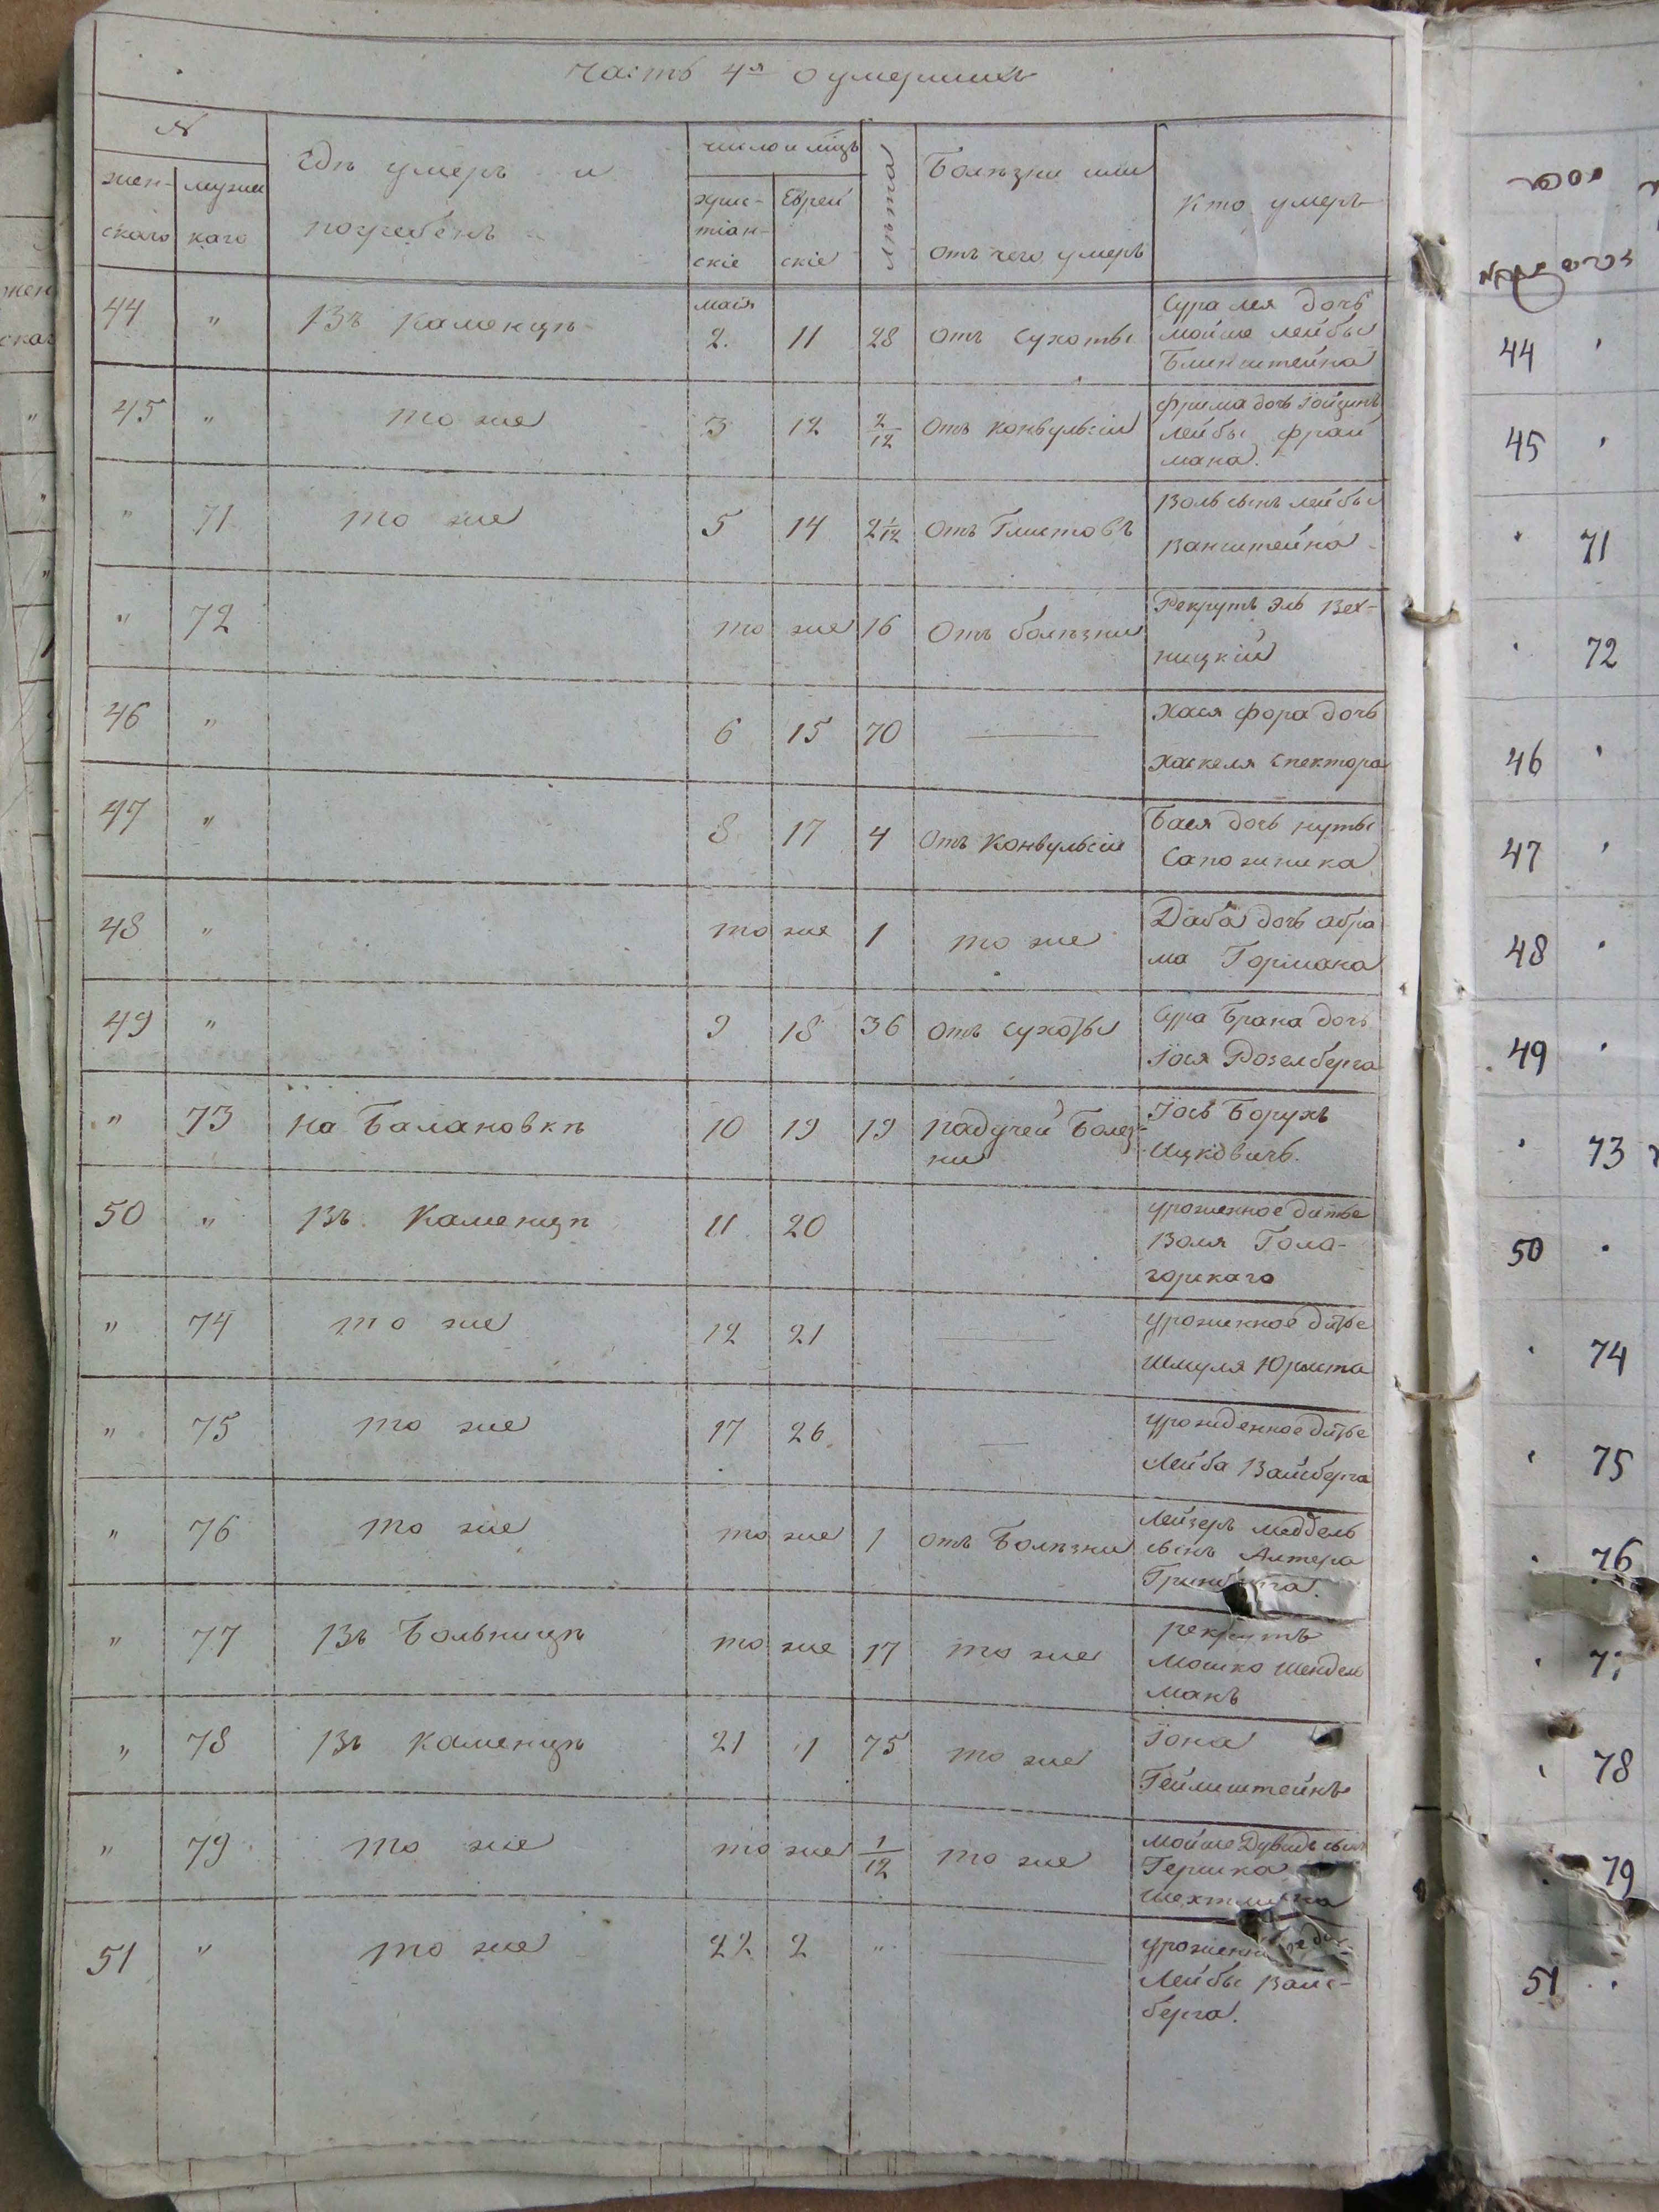 Часть 4я о умершихъ
№
жен-
скаго
мужес
каго
Гдѣ умеръ и
погребенъ
число и мѣцъ
хрис-
тіан-
скіе
Еврей
скіе
Лѣта
Болѣзни или
отъ чего умеръ
Кто умеръ
44 " Въ Каменцѣ маія 2. 11 28 отъ сухоты Сура Лея дочь
Мойше Лейбы
Блинштейна
45 " то же 3 12 2/12 отъ конвульсіи Фрима дочь
Лейбы Фрай
мана.
" 71 то же 5 14 2 1/12 отъ Глистовъ Воль сынъ Лейбы
Ванштейна
" 72 то же 16 Отъ болѣзни Рекрутъ Эль Вех-
ницкій
46 " 6 15 70 — Хася Фора дочь
Хаскеля Спектора
47 " 8 17 4 отъ Конвульсіи Бася дочь Нуты
Сапожника
48 " то же 1 то же Даба дочь Абра
ма Гормана
49 " 9 18 36 отъ сухоты Сура Брана дочь
Іося Розелберга
" 73 на Балановкѣ 10 19 19 падучей Болез-
ни
Іось Борухъ
Ицковичь.
50 " Въ Каменцѣ 11 20 урожинное дитье
Воля Гола-
горскаго
" 74 то же 12 21 — урожинное дитье
Шмуля Юрыста
" 75 то же 17 26 — урожденное дитье
Лейба Вайсберга
" 76 то же то же 1 отъ Болѣзни Лейзеръ
сынъ Алтера
" 77 Въ Больницѣ то же 17 то же рекрутъ
Мошко Шендел
манъ
" 78 Въ Каменцѣ 21 1 75 то же Іона
Геймштейнъ
" 79 то же то же 1/12 то же Мойше Дувидъ сынъ
Гершка
51 " то же 22 2 " —
Лейбы Вайс-
берга.
44 "
45 "
" 71
" 72
46 "
47 "
48 "
49 "
" 73
50 "
" 74
" 75
" 76
" 78
" 79
51 "